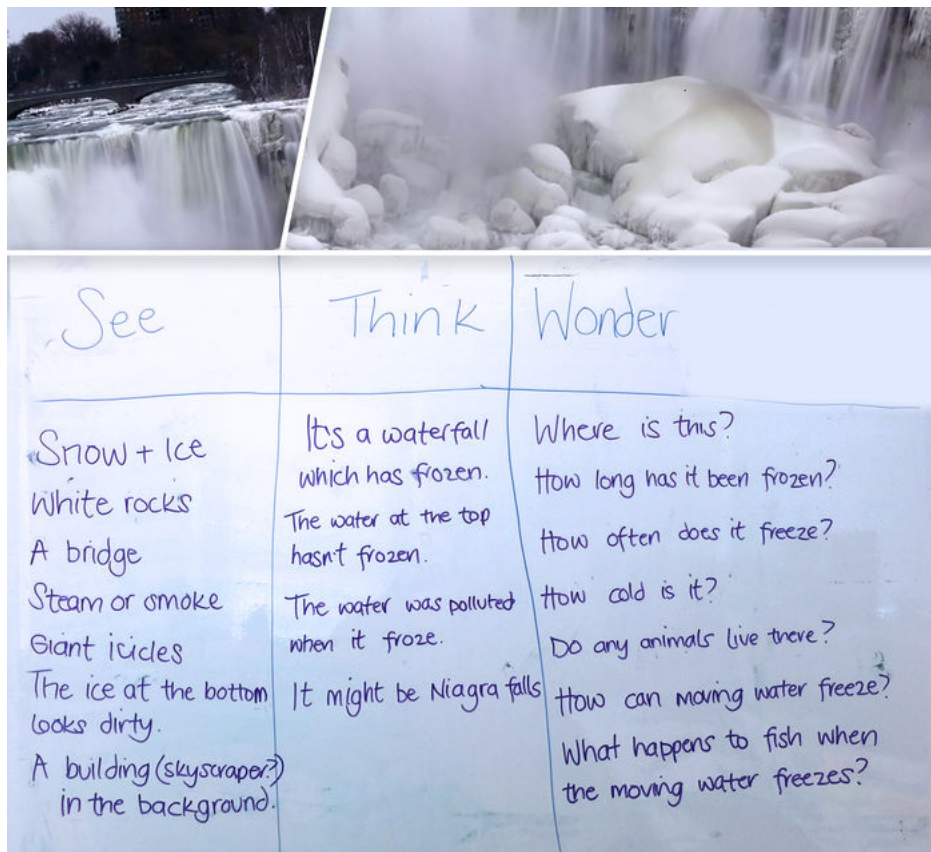 See
Think
Wonder
Snow + Ice
White rocks
A bridge
Steam or smoke
Giant icicles
The ice at the bottom
looks dirty.
A building (skyscraper?)
in the background.
It's a waterfall
which has frozen.
The water at the top
hasn't frozen.
The water was polluted
when it froze.
It might be Niagra falls
Where is this?
How long has it been frozen?
How often does it freeze?
How cold is it?
Do any animals live there?
How can moving water freeze?
What happens to fish when
the moving water freezes?